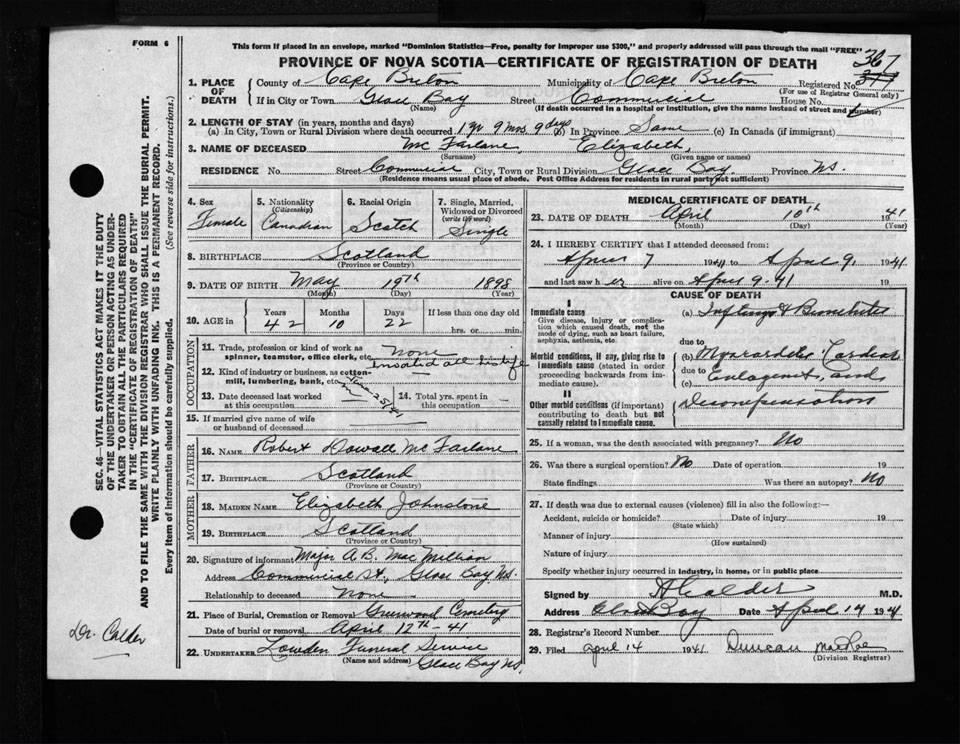 FORM 6
This form if placed in an envelope, marked "Dominion Statistics—Free, penalty for improper use $300," and properly addressed will pass through the mail "FREE"
PROVINCE OF NOVA SCOTIA—CERTIFICATE OF REGISTRATION OF DEATH
367
1. PLACE OF DEATH
County of Cape Breton Municipality of Cape Breton Registered No.
(For use of Registrar General only)
If in City or Town Glace Bay Street Commercial House No.
(Name) (If death occurred in a hospital or institution, give the name instead of street and number)
2. LENGTH OF STAY (in years, months and days)
(a) In City, Town or Rural Division where death occurred 1 yr 9 mos. 9 days (b) In Province Same (c) In Canada (if immigrant)
3. NAME OF DECEASED Mc Farlane, Elizabeth,
(Surname) (Given name or names)
RESIDENCE No. Street Commercial City, Town or Rural Division Glace Bay. Province NS.
(Residence means usual place of abode. Post Office Address for residents in rural parts not sufficient)
4. Sex Female
5. Nationality (Citizenship) Canadian
6. Racial Origin Scotch
7. Single, Married, Widowed or Divorced (write the word) Single
8. BIRTHPLACE Scotland
(Province or Country)
9. DATE OF BIRTH May 19th 1898
(Month) (Day) (Year)
10. AGE in Years 42 Months 10 Days 22 If less than one day old hrs. or min.
OCCUPATION
11. Trade, profession or kind of work as spinner, teamster, office clerk, etc. None
12. Kind of industry or business, as cotton-mill, lumbering, bank, etc. invalid all his life
13. Date deceased last worked at this occupation
14. Total yrs. spent in this occupation
15. If married give name of wife or husband of deceased
FATHER
16. NAME Robert Dowall Mc Farlane
17. BIRTHPLACE Scotland
(Province or Country)
MOTHER
18. MAIDEN NAME Elizabeth Johnstone
19. BIRTHPLACE Scotland
(Province or Country)
20. Signature of informant Major A.B. Mac Millian
Address Commercial St., Glace Bay NS.
Relationship to deceased None
21. Place of Burial, Cremation or Removal Greenwood Cemetery
Date of burial or removal April 12th - 41
22. UNDERTAKER Lowden Funeral Service
(Name and address) Glace Bay NS.
MEDICAL CERTIFICATE OF DEATH
23. DATE OF DEATH April 10th 1941
(Month) (Day) (Year)
24. I HEREBY CERTIFY that I attended deceased from:
April 7 1941 to April 9, 1941
and last saw her alive on April 9. 41
CAUSE OF DEATH
I
Immediate cause
Give disease, injury or complication which caused death, not the mode of dying, such as heart failure, asphyxia, asthenia, etc.
(a) & Bronchitis
due to
Morbid conditions, if any, giving rise to immediate cause (stated in order proceeding backwards from immediate cause).
(b) Myocarditis Cardiac
due to
(c) Enlargement, and
II
Other morbid conditions (if important) contributing to death but not causally related to immediate cause.
Decompensation
25. If a woman, was the death associated with pregnancy? No
26. Was there a surgical operation? No Date of operation 19
State findings Was there an autopsy? No
27. If death was due to external causes (violence) fill in also the following:—
Accident, suicide or homicide? Date of injury 19
(State which)
Manner of injury
(How sustained)
Nature of injury
Specify whether injury occurred in industry, in home, or in public place
Signed by A Calder M.D.
Address Glace Bay Date April 14 1941
28. Registrar's Record Number
29. Filed April 14 1941 Duncan MacRae
(Division Registrar)
SEC. 46—VITAL STATISTICS ACT MAKES IT THE DUTY
OF THE UNDERTAKER OR PERSON ACTING AS UNDER-
TAKER TO OBTAIN ALL THE PARTICULARS REQUIRED
IN THE "CERTIFICATE OF REGISTRATION OF DEATH"
AND TO FILE THE SAME WITH THE DIVISION REGISTRAR WHO SHALL ISSUE THE BURIAL PERMIT.
WRITE PLAINLY WITH UNFADING INK. THIS IS A PERMANENT RECORD.
Every item of information should be carefully supplied. (See reverse side for instructions.)
Dr. Calder